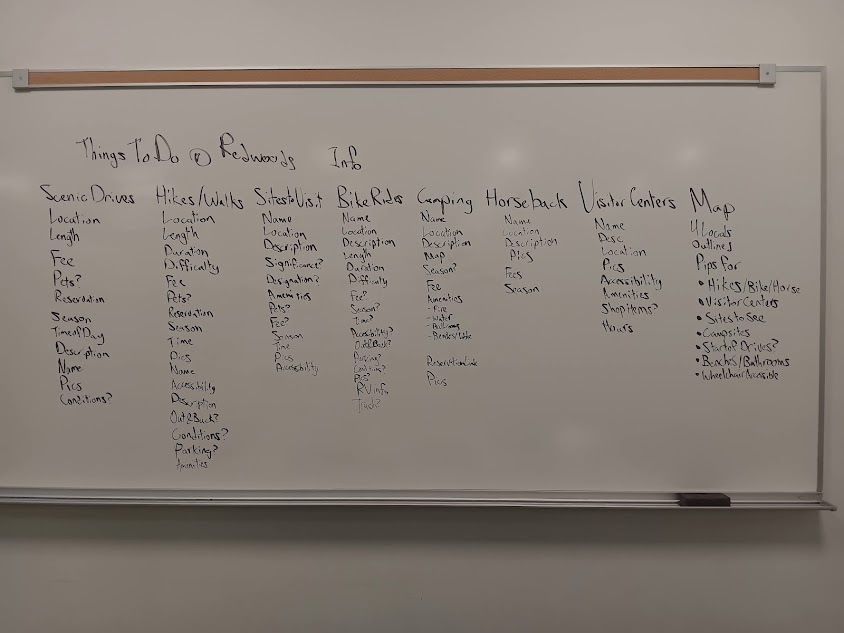 Things To Do @ Redwoods Info
Scenic Drives
Location
Length
Fee
Pets?
Reservation
Season
Time of Day
Description
Name
Pics
Conditions?
Hikes/Walks
Location
Length
Duration
Difficulty
Fee
Pets?
Reservation
Season
Time
Pics
Name
Accessibility
Description
Out&Back?
Conditions?
Parking?
Amenities
Sites to Visit
Name
Location
Description
Significance?
Designation?
Amenities
Pets?
Fee?
Season
Time
Pics
Accessibility
Bike Rides
Name
Location
Description
Length
Duration
Difficulty
Fee?
Season?
Time?
Accessibility?
Out&Back?
Parking?
Conditions?
Pets?
RV info
Camping
Name
Location
Description
Map
Season?
Fee
Amenities
- Fire
- Water
- Bathrooms
Reservation Link
Pics
Horseback
Name
Location
Description
Pics
Fees
Season
Visitor Centers
Name
Desc
Location
Pics
Accessibility
Amenities
Shop items?
Hours
Map
4 Locals
Outlines
Pips for
• Hikes/Bike/Horse
• Visitor Centers
• Sites to See
• Campsites
• Start of Drives?
• Benches/Bathrooms
• Wheelchair Accessible